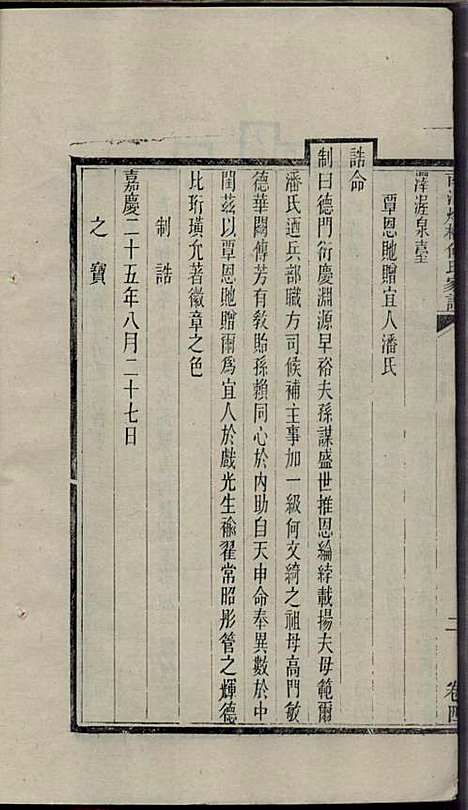 澤渥泉臺
覃恩貤贈宜人潘氏
誥命
制曰德門衍慶淵源早裕夫孫謀盛世推恩綸綍載揚夫母範爾
潘氏迺兵部職方司候補主事加一級何文綺之祖母高門敏
德華閥傳芳有敎貽孫賴同心於內助自天申命奉異數於中
閨茲以覃恩貤贈爾爲宜人於戲光生褕翟常昭彤管之輝德
比珩璜允著徽章之色
制誥
嘉慶二十五年八月二十七日
之寶
氏家譜
卷四
二